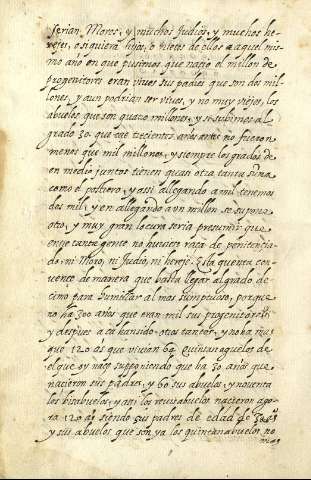 serian Moros, y muchos Judios, y muchos he
rejes, o siquiera hijos, o nietos de ellos a aquel mis
mo ano en que pusimos que nacio el millon de
progenitores eran vivos sus padres que son dos mil
lones, y aun podrian ser vivos, y no muy viejos, los
abuelos que son quatro millones, y si subimos al
grado 30. que ese trecientos años antes no fueron
menos que mil millones, y siempre los grados de
en medio juntos tienen quasi otra tanta suma
como el postrero, y assi allegando a mil tenemos
dos mil, y en allegando a un millon se supone
otro, y muy gran locura seria presumir que
entre tanta gente no huviese raça de penitencia
do, ni Moro, ni Judio, ni hereje. Esta quenta con
vence de manera que basta llegar al grado de
cimo para humillar al mas sumptuoso, porque
no ha 300 años que eran mil sus progenitores
y despues aca han sido otos tantos, y no ha mas
que 120 años que vivian 64 quintan aguelos de
el que oy nace suponiendo que ha 30 años que
nacieron sus padres, y 60 sus abuelos, y noventa
los bisabuelos, y assi los revisabuelos nacieron ago
ra 120 años siendo sus padres de edad de 30 años
y sus abuelos que son ya los quintanabuelos no
mas